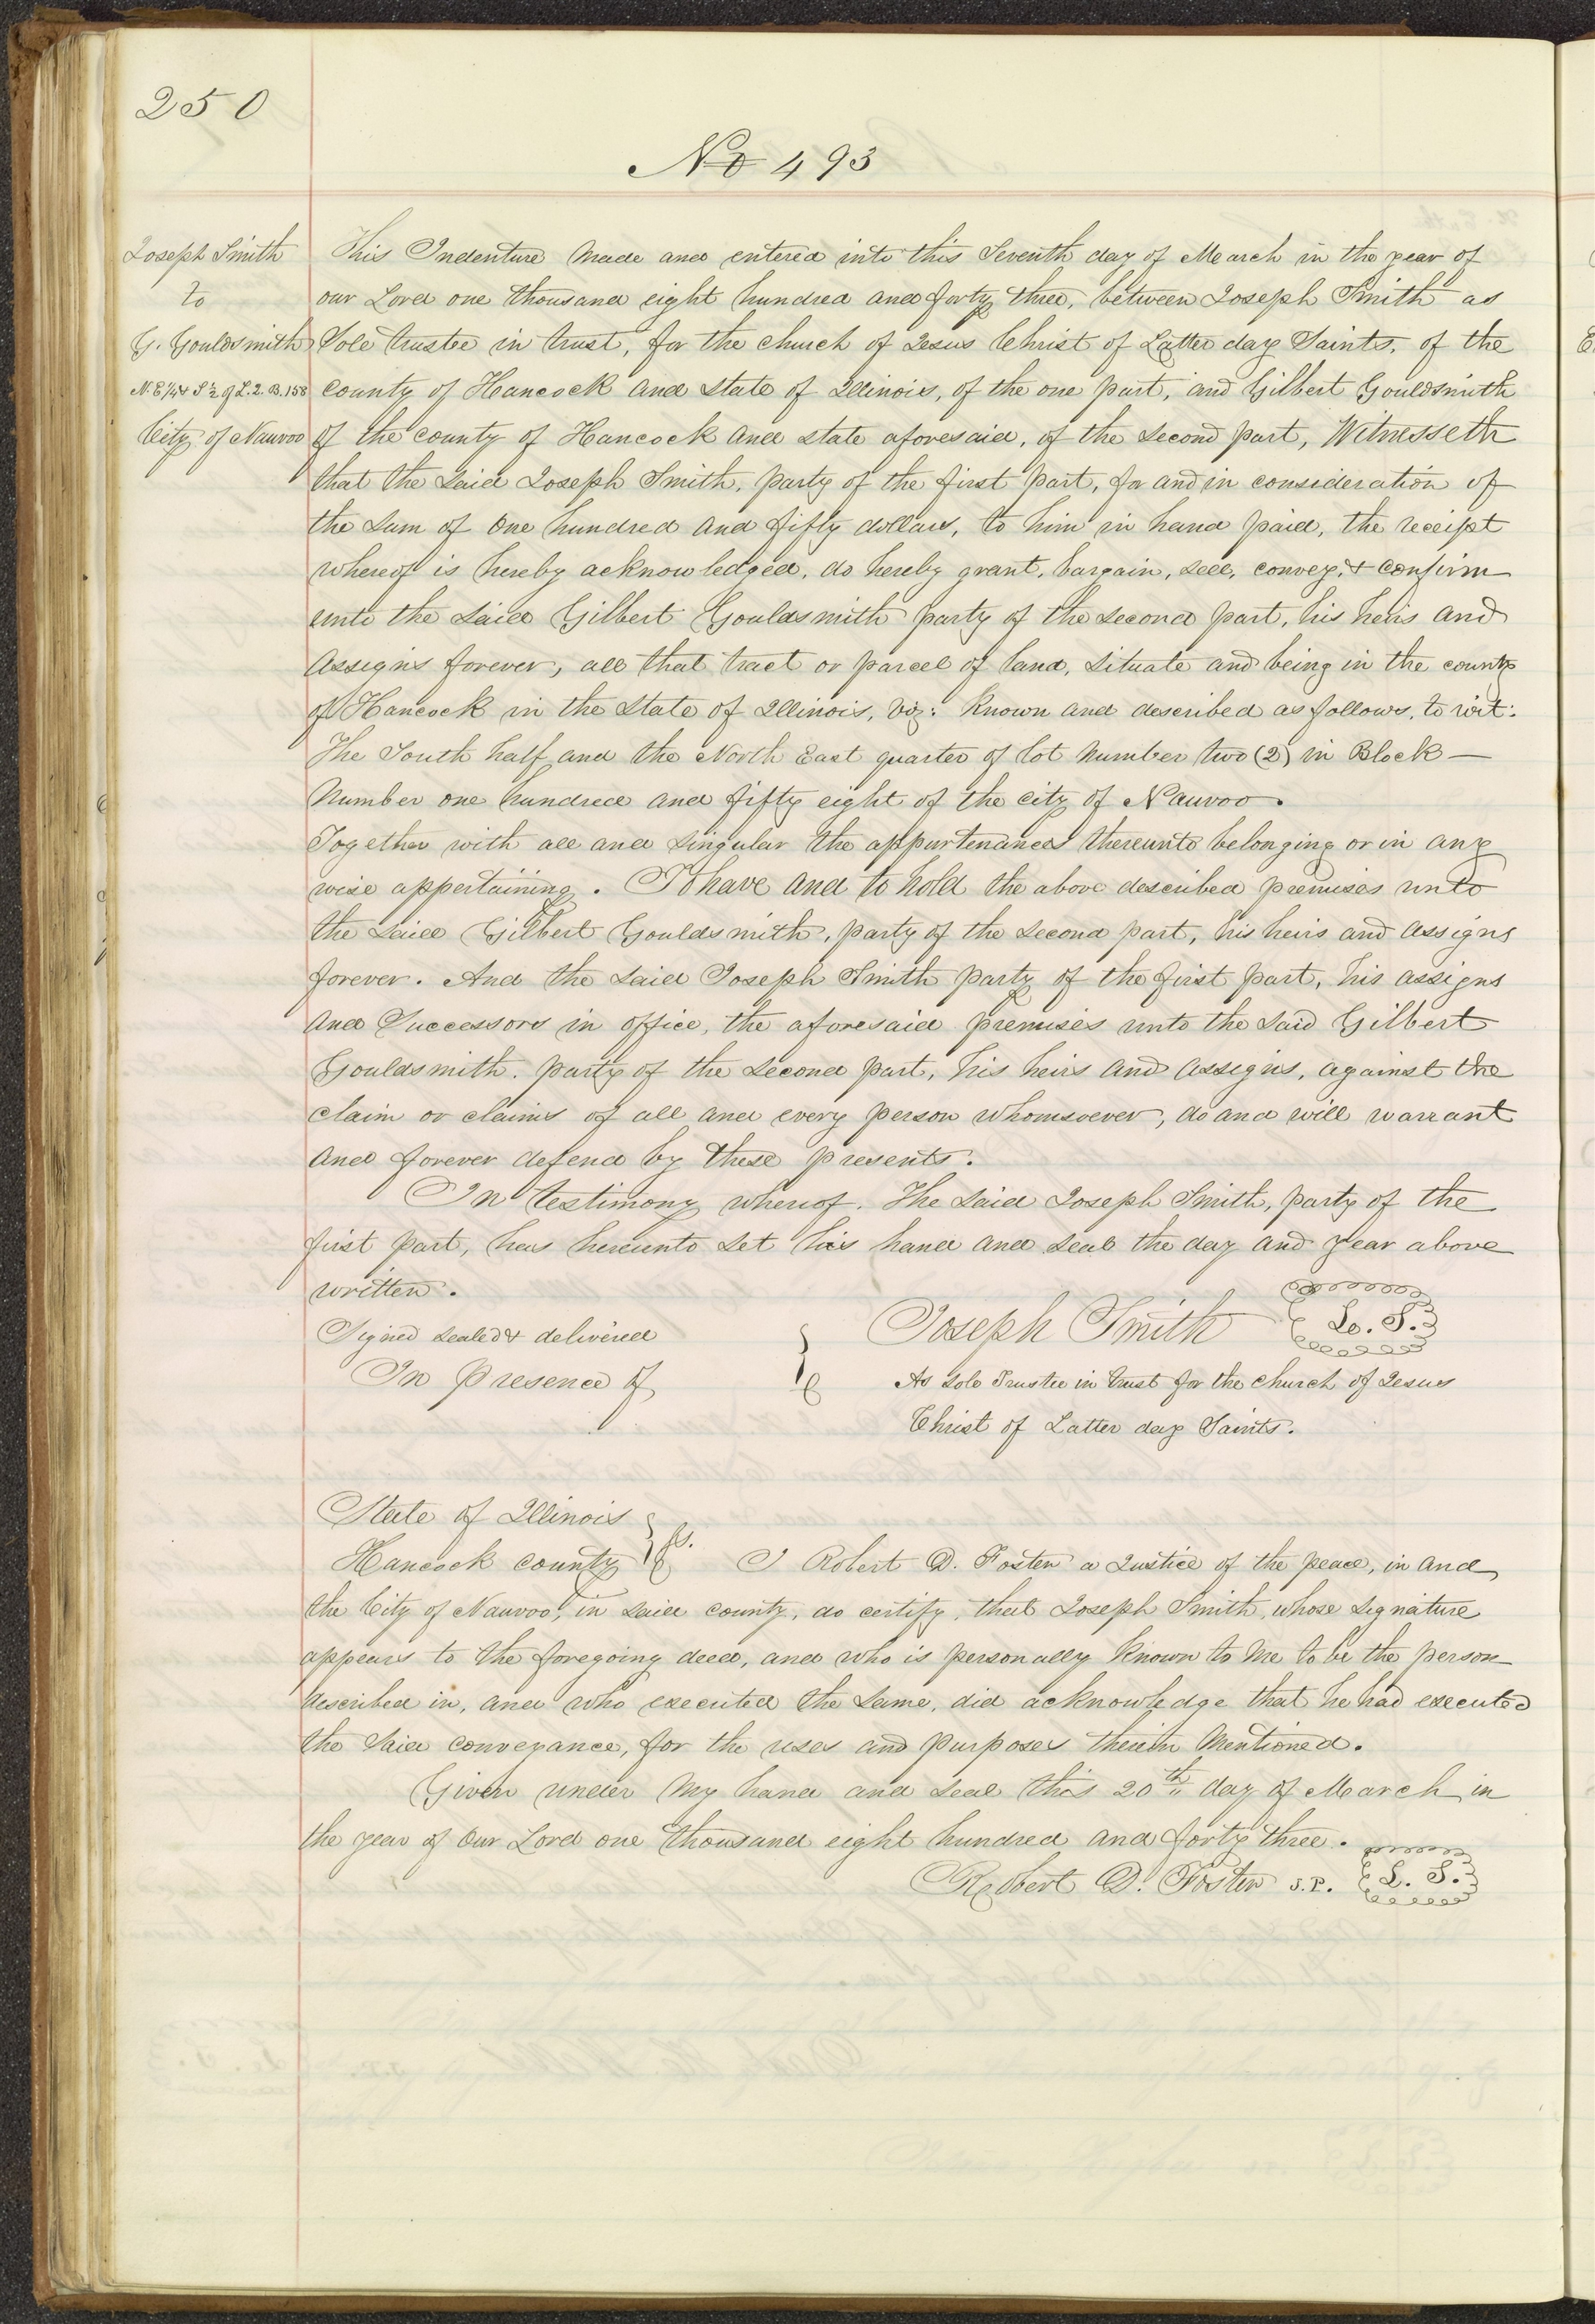 250
No 493
Joseph Smith
to
G. Gouldsmith
N.E 1/4 & S ½ of L. 2. B. 158
City of Nauvoo
This Indenture Made and entered into this Seventh day of March in the year of
our Lord one thousand eight hundred and forty three, between Joseph Smith as
Sole trustee in trust, for the church of Jesus Christ of Latter day Saints, of the
county of Hancock and State of Illinois, of the one part, and Gilbert Gouldsmith
of the county of Hancock and state aforesaid, of the Second part, Witnesseth
that the said Joseph Smith, party of the first part, for and in consideration of
the sum of One hundred and fifty dollars, to him in hand paid, the receipt
whereof is hereby acknowledged, do hereby grant, bargain, sell, convey, & confirm
unto the said Gilbert Gouldsmith party of the second part, his heirs and
assigns forever, all that tract or parcel of land, situate and being in the county
of Hancock in the State of Illinois, viz: Known and described as follows, to wit:
The South half and the North East quarter of lot Number two (2) in Block —
Number one hundred and fifty eight of the city of Nauvoo.
Together with all and singular the appurtenances thereunto belonging or in any
wise appertaining. To have and to hold the above described premises unto
the said Gilbert Gouldsmith, party of the second part, his heirs and assigns
forever. And the said Joseph Smith party of the first part, his assigns
and Successors in office, the aforesaid premises unto the said Gilbert
Gouldsmith. party of the second part, his heirs and assigns, against the
claim or claims of all and every person whomsoever, do and will warrant
and forever defend by these presents.
In testimony whereof. The said Joseph Smith, party of the
first part, has hereunto set his hand and seal the day and year above
written.
Signed sealed & delivered
In presence of
Joseph Smith L. S.
As sole Trustee in trust for the church of Jesus
Christ of Latter day Saints.
State of Illinois
Hancock county ss. I Robert D. Foster a Justice of the peace, in and
the City of Nauvoo, in said county, do certify, that Joseph Smith, whose signature
appears to the foregoing deed, and who is personally known to me to be the person
described in, and who executed the same, did acknowledge that he had executed
the said conveyance, for the uses and purposes therein Mentioned.
Given under My hand and seal this 20th day of March in
the year of Our Lord one thousand eight hundred and forty three.
Robert D. Foster J.P. L. S.